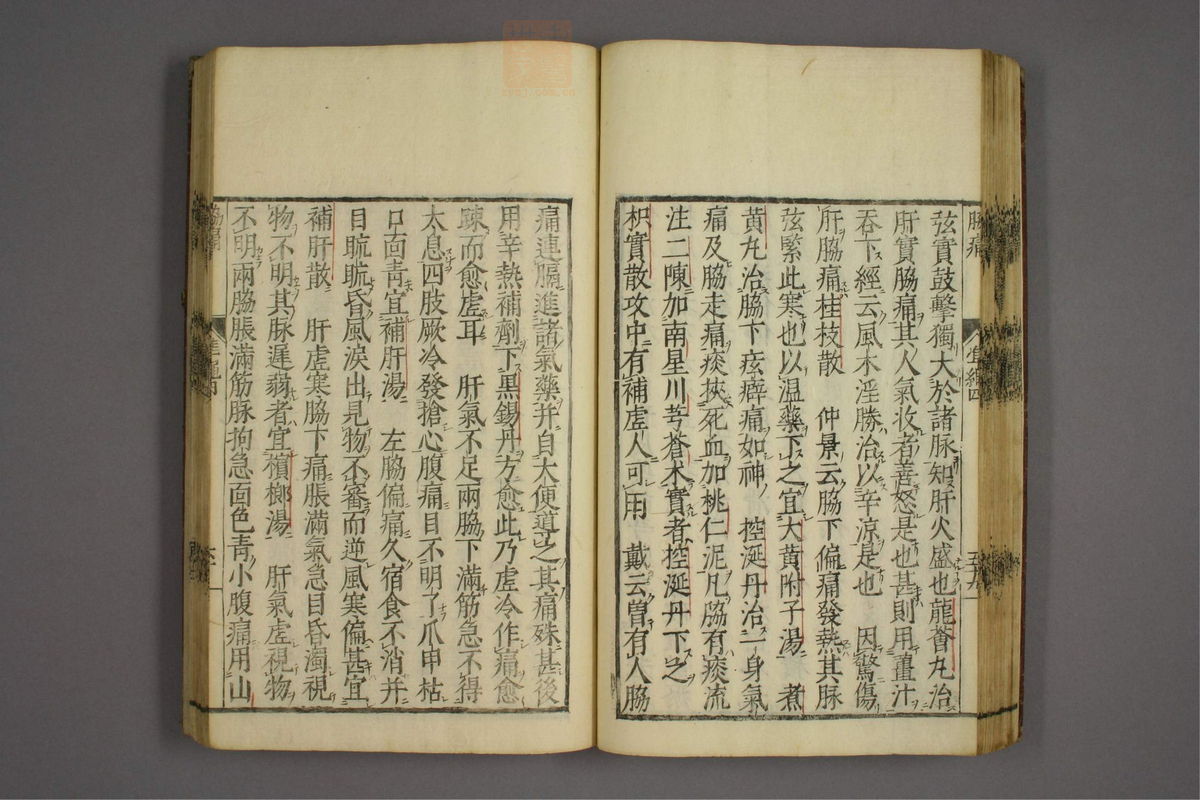 脇痛
弦實鼓擊獨大於諸脉知肝火盛也龍薈丸治
肝實脇痛其人氣收者善怒是也甚則用薑汁
吞下經云風木淫勝治以辛凉是也　因驚傷
肝脇痛桂枝散　仲景云脇下偏痛發熱其脉
弦緊此寒也以温藥下之宜大黄附子湯　煮
黄丸治脇下痃癖痛如神　控涎丹治一身氣
痛及脇走痛痰挾死血加桃仁泥凡脇有痰流
注二陳加南星川芎蒼术實者控涎丹下之
枳實散攻中有補虚人可用　戴云曽有人脇
痛連膈進諸氣藥并自大便道之其痛殊甚後
用辛熱補劑下黒錫丹方愈此乃虚冷作痛愈
踈而愈虚耳　肝氣不足兩脇下滿筋急不得
太息四肢厥冷發搶心腹痛目不明了爪甲枯
口面青宜補肝湯　左脇偏痛久宿食不消并
目䀮䀮昏風淚出見物不審而逆風寒偏甚宜
補肝散　肝虚寒脇下痛脹滿氣急目昏濁視
物不明其脉遲弱者宜檳榔湯　肝氣虚視物
不明兩脇脹滿筋脉拘急面色青小腹痛用山
脇痛